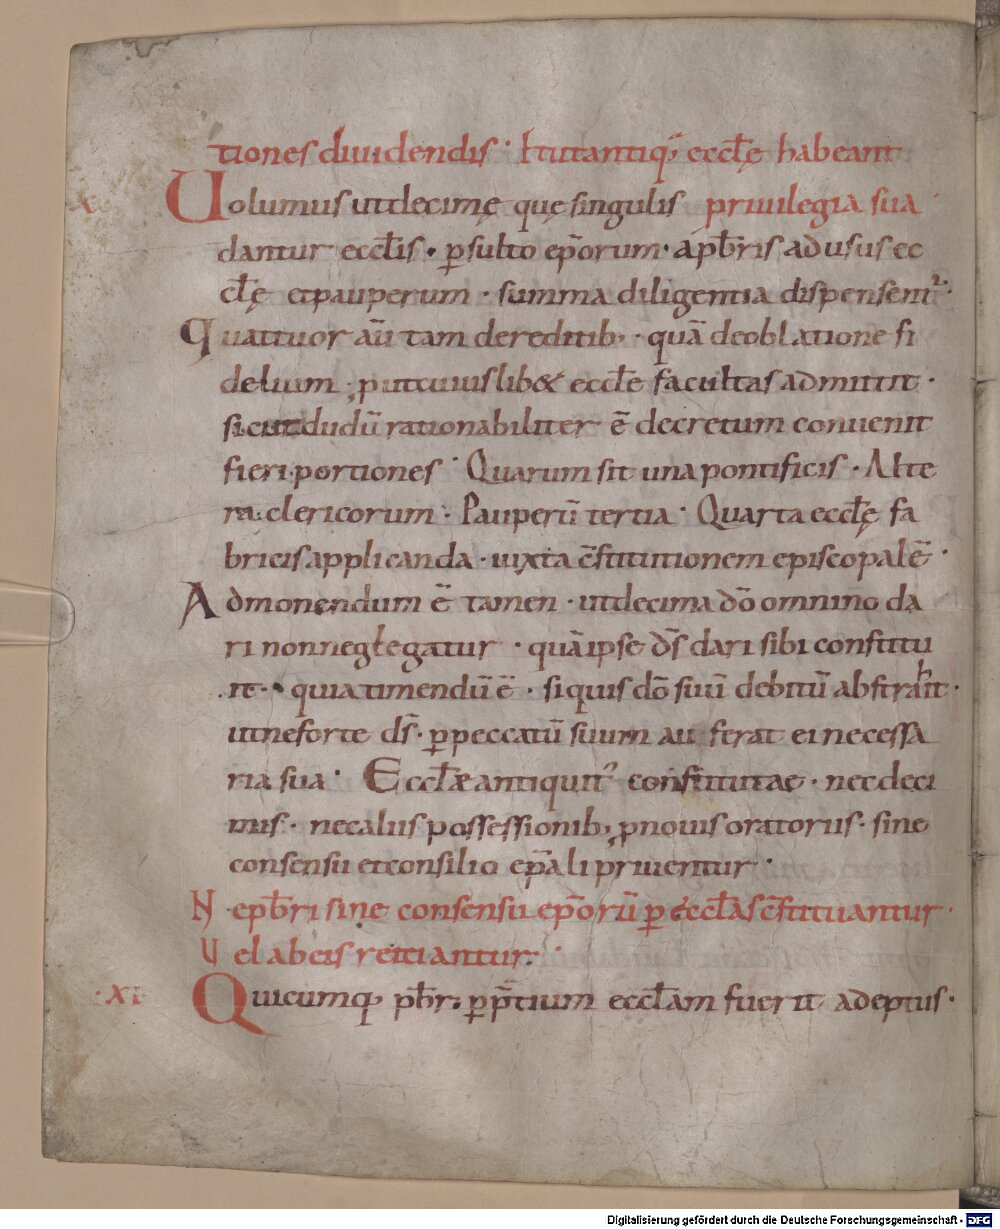 tiones diuidendis · & ut antiq; eccłę habeant
x Uolumus ut decimę quę singulis priuilegia sua
dantur ecclis · p̲sulto ep̄orum · a pb̄ris ad usus ec
cłę et pauperum · summa diligentia dispensent᷒ ·
Quattuor aū tam de redditib; · quā de oblatione fi
delium · put cuiuslib& eccłe facultas admittit ·
sicut dudū rationabiliter ē decretum conuenit
fieri portiones · Quarum sit una pontificis · Alte
ra clericorum · Pauperū tertia · Quarta eccłę fa
bricis applicanda · iuxta c̄stitutionem episcopalē ·
Admonendum ē tamen · ut decima dō omnino da
ri non neglegatur · quā ipse d̄s dari sibi constitu
it · quia timendū ē · si quis dō suū debitū abstrahit ·
ut ne forte d̄s · p̲ peccatū suum auferat ei necessa
ria sua · Eccłæ antiquit᷒ constitutae · nec deci
mis · nec aliis possessionib; p̲ nouis oratoriis · sine
consensu et consilio ep̄ali priuentur ·
Ne pb̄ri sine consensu ep̄orū p̲ eccłas c̄stituantur ·
Uel ab eis reitiantur ·
· XI · Quicumq; pb̄r · p̲ p̄tium eccłam fuerit adeptus ·
Digitalisierung gefördert durch die Deutsche Forschungsgemeinschaft - DFG